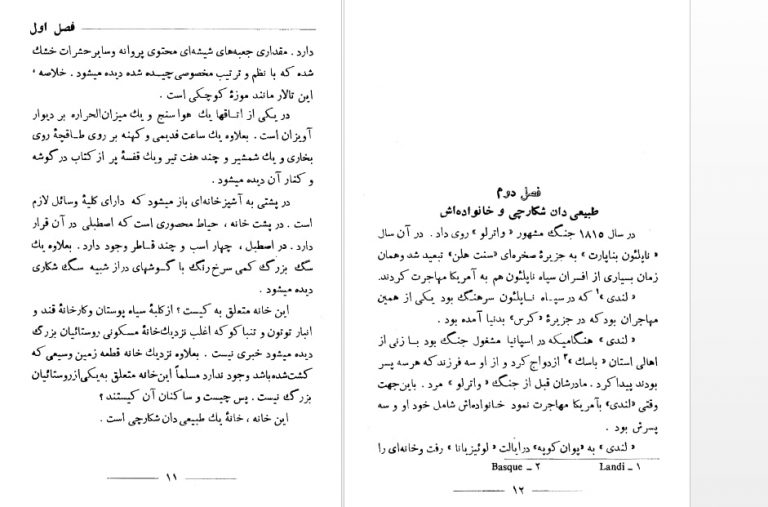 فصل اول
دارد . مقداری جعبه‌های شیشه‌ای محتوی پروانه وسایر حشرات خشك
شده که با نظم و ترتیب مخصوصی چیده شده دیده میشود . خلاصه ،
این تالار مانند موزهٔ کوچکی است .
در یکی از اتاقها یك هواسنج و یك میزان‌الحراره بر دیوار
آویزان است . بعلاوه یك ساعت قدیمی و کهنه بر روی طاقچهٔ روی
بخاری و یك شمشیر و چند هفت تیر ویك قفسهٔ پر از کتاب در گوشه
و کنار آن دیده میشود .
در پشتی به آشپزخانه‌ای باز میشود که دارای کلیهٔ وسائل لازم
است . در پشت خانه ، حیاط محصوری است که اصطبلی در آن قرار
دارد . در اصطبل ، چهار اسب و چند قاطر وجود دارد . بعلاوه یك
سگ بزرگ کمی سرخ رنگ با گوشهای دراز شبیه سگ شکاری
دیده میشود .
این خانه متعلق به کیست ؟ از کلبهٔ سیاه پوستان وکارخانهٔ قند و
انبار توتون و تنباکو که اغلب نزدیك خانهٔ مسکونی روستائیان بزرگ
دیده میشود خبری نیست . بعلاوه نزدیك خانه قطعه زمین وسیعی که
کشت‌شده‌باشد وجود ندارد مسلماً این خانه متعلق به‌یکی از روستائیان
بزرگ نیست . پس چیست و ساکنان آن کیستند ؟
این خانه ، خانهٔ یك طبیعی دان شکارچی است .
۱۱
فصل دوم
طبیعی دان شکارچی و خانواده‌اش
در سال ۱۸۱۵ جنگ مشهور « واترلو » روی داد . در آن سال
« ناپلئون بناپارت » به جزیرهٔ صخره‌ای «سنت هلن» تبعید شد وهمان
زمان بسیاری از افسران سپاه ناپلئون هم به آمریکا مهاجرت کردند.
« لندی »۱ که در سپاه ناپلئون سرهنگ بود یکی از همین
مهاجران بود که در جزیرهٔ «کرس» بدنیا آمده بود .
« لندی » هنگامیکه در اسپانیا مشغول جنگ بود با زنی از
اهالی استان « باسك »۲ ازدواج کرد و از او سه فرزند که هرسه پسر
بودند پیدا کرد . مادرشان قبل از جنگ « واترلو » مرد . باین‌جهت
وقتی «لندی» بآمریکا مهاجرت نمود خانواده‌اش شامل خود او و سه
پسرش بود .
« لندی » به «پوان کوپه» در ایالت « لوئیزیانا » رفت وخانه‌ای را
۱ ــ Landi ۲ ــ Basque
۱۲